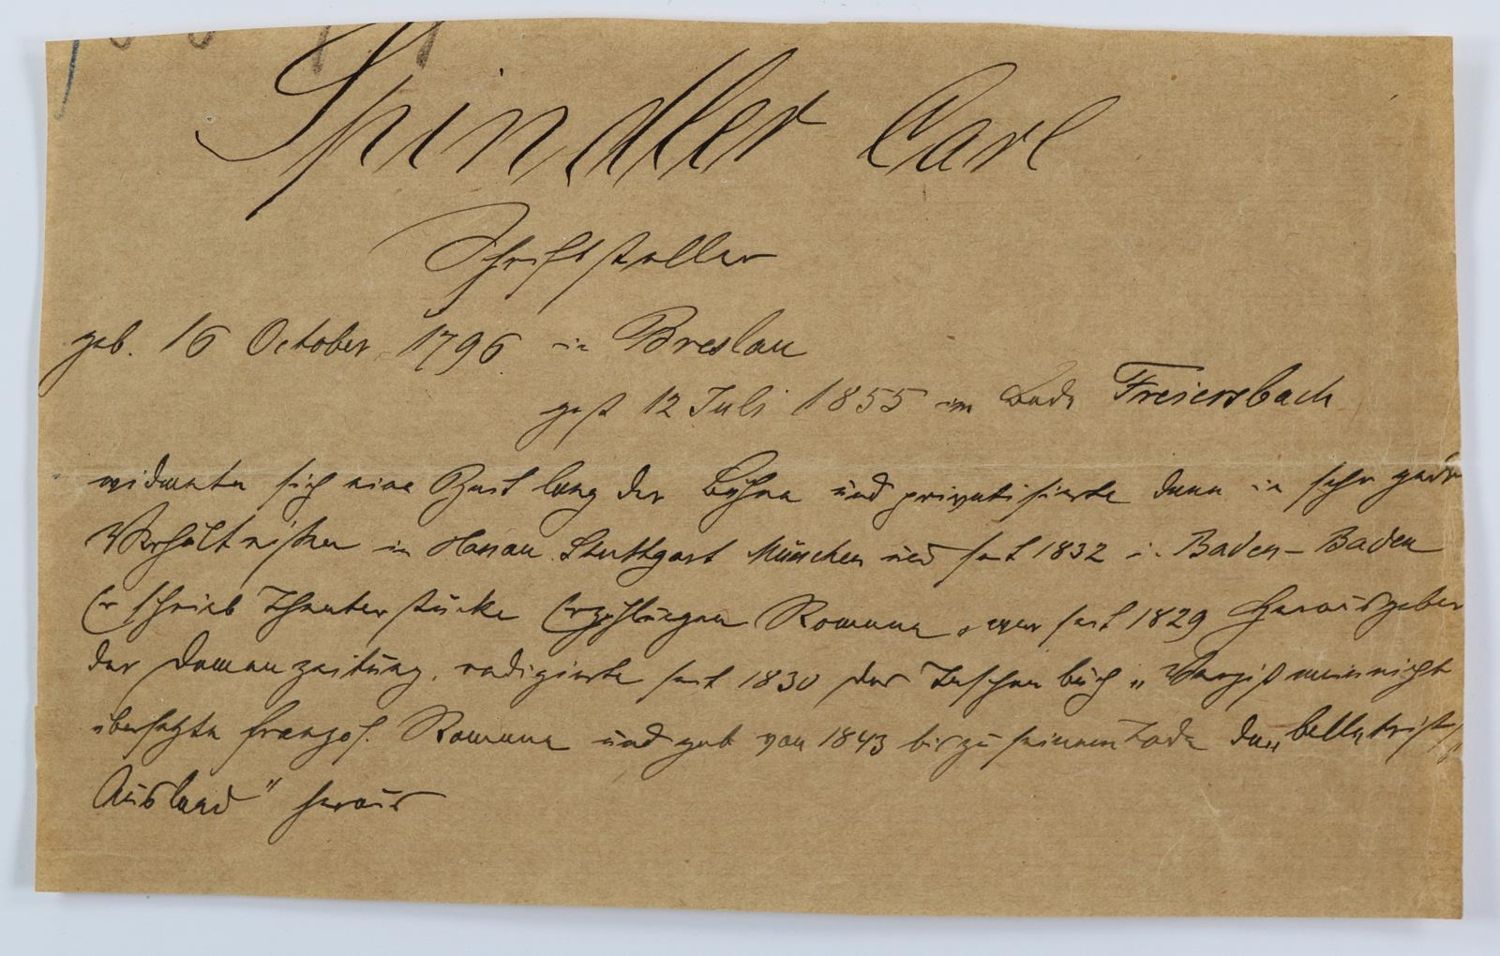 Spindler Carl
Schriftsteller
geb. 16 October 1796 in Breslau
gest 12 Juli 1855 im Bade Freiersbach
widmete sich eine Zeit lang der Bühne und privatisierte dann in sehr
Verhältnissen in Hanau Stuttgart München und seit 1832 in Baden-Baden
Er schrieb Theaterstücke Erzählungen Romane, war seit 1829 Herausgeber
der Damenzeitung, redigierte seit 1830 das Taschenbuch „Vergißmeinnicht
übersetzte französ. Romane und gab von 1843 bis zu seinem Tode das „belletrist
Ausland" heraus